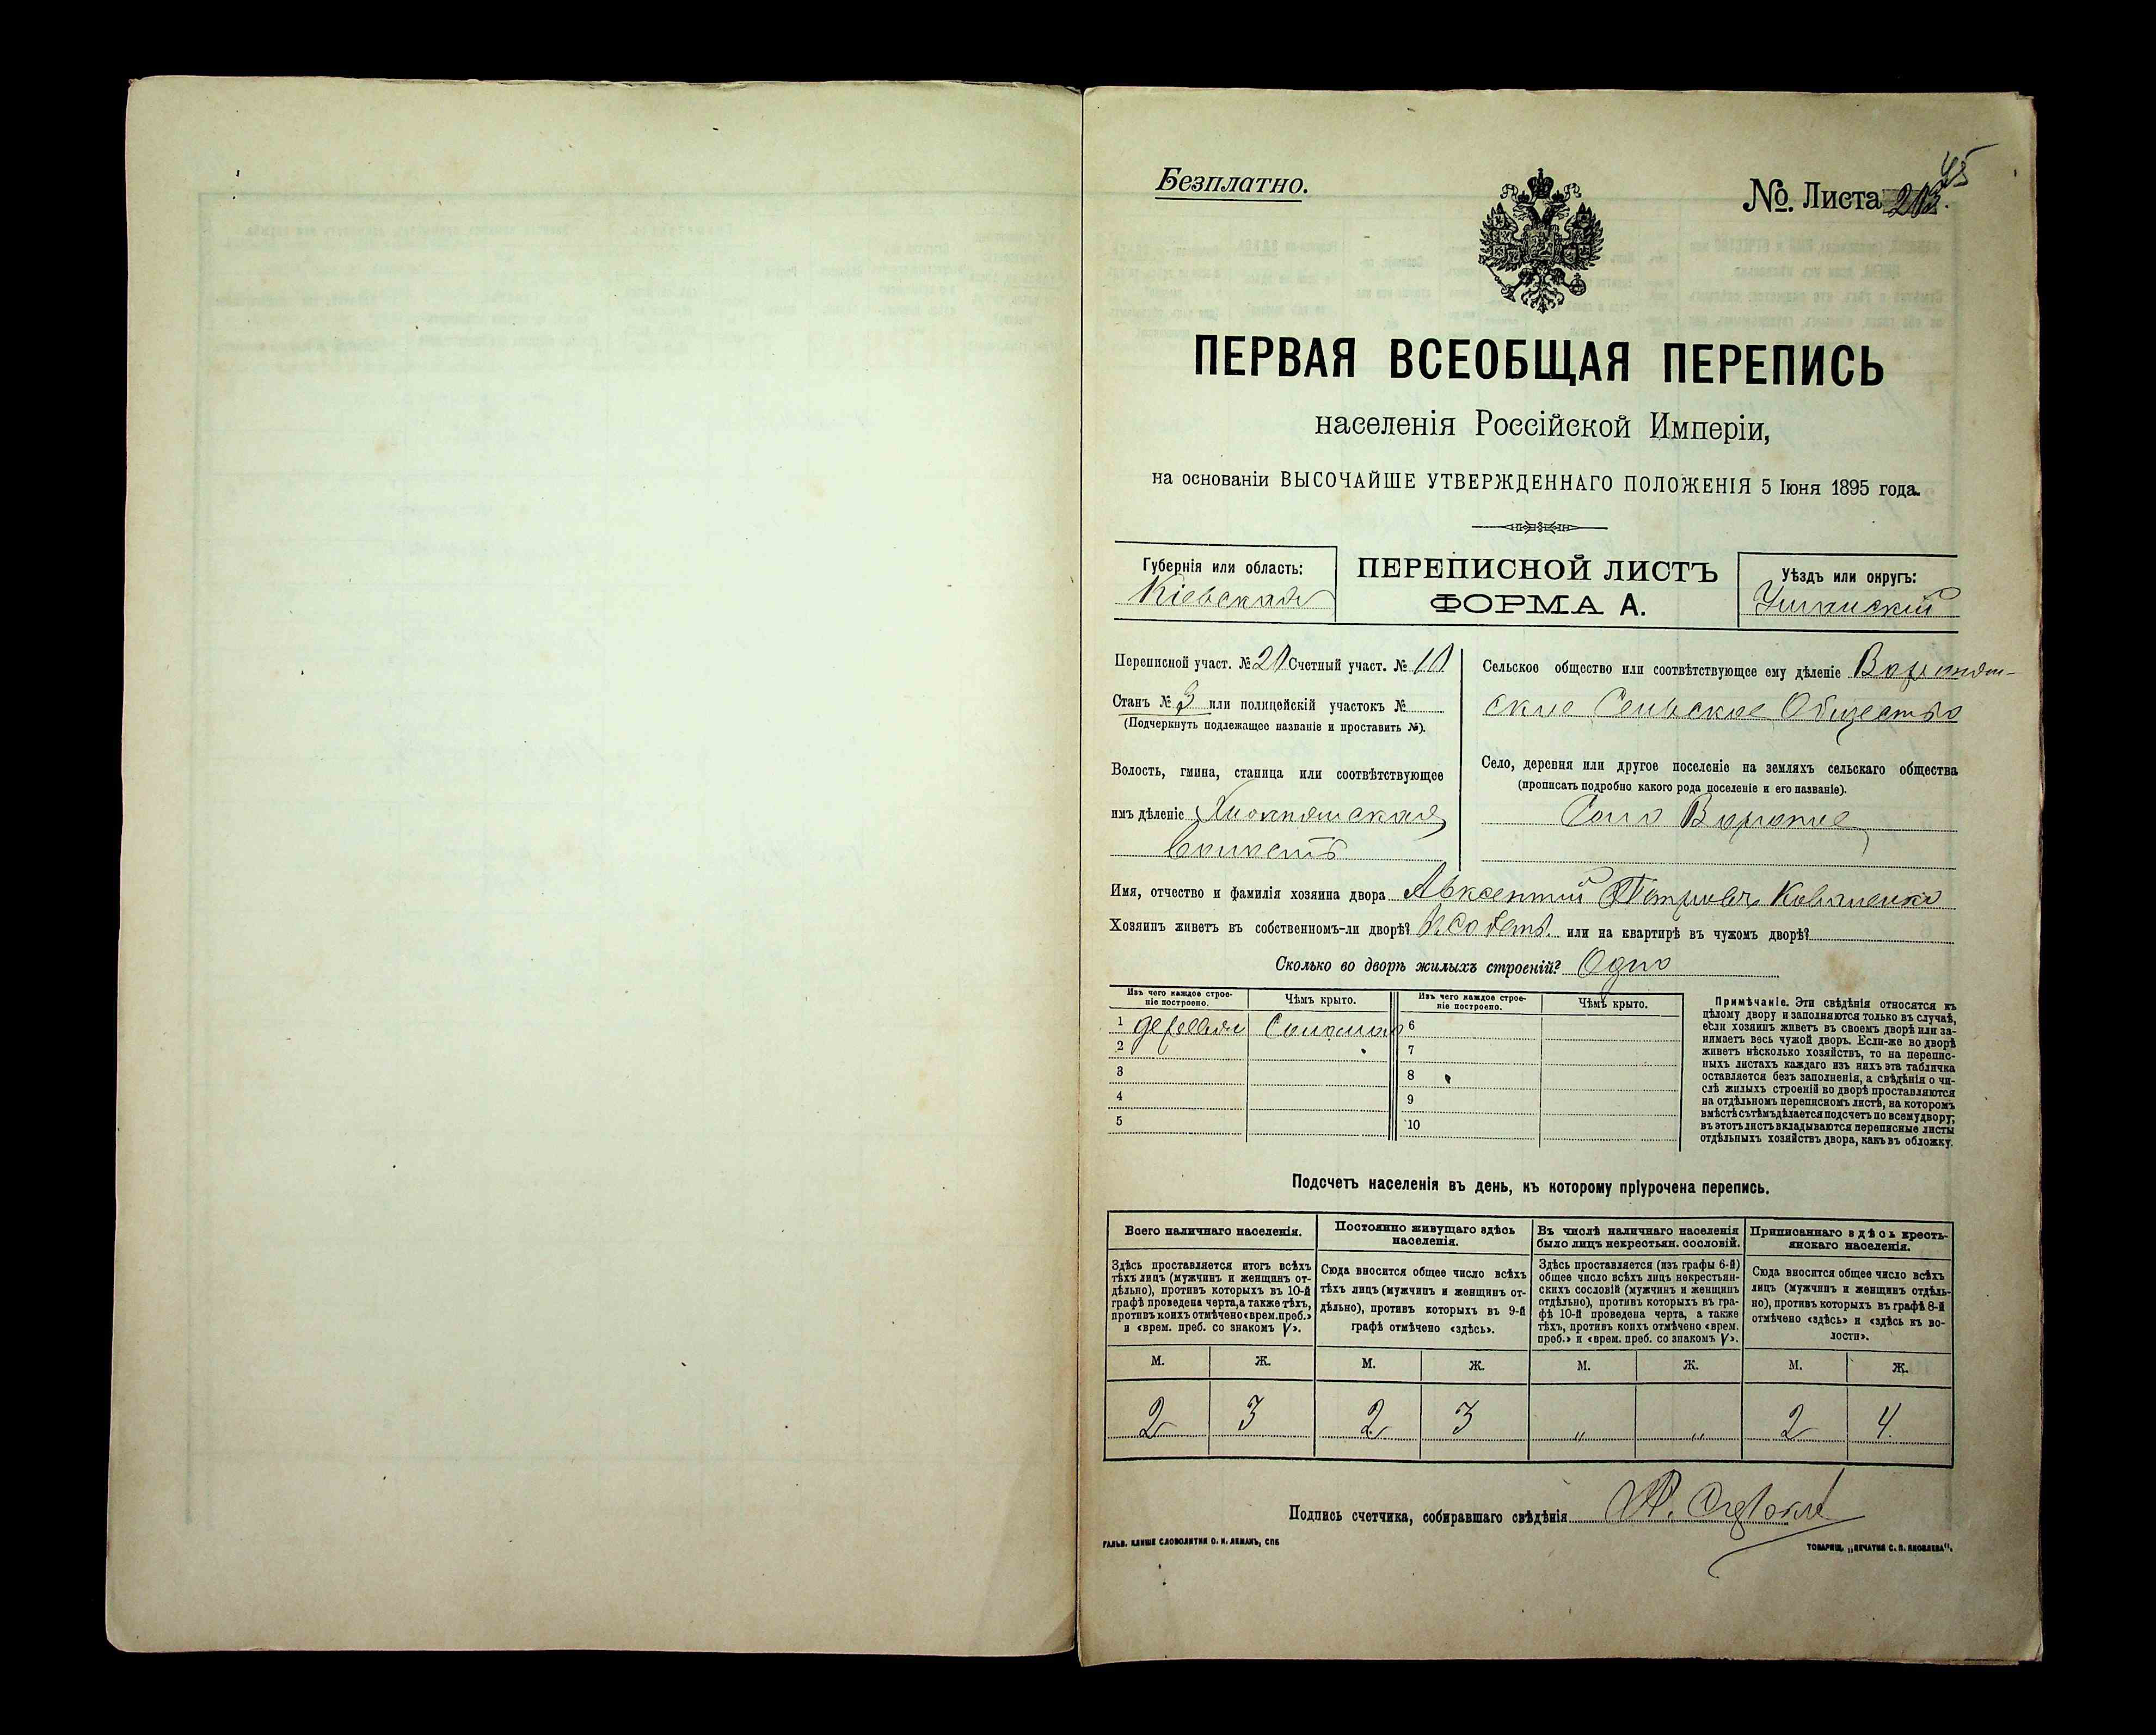 Безплатно.
№. Листа 203.
45
ПЕРВАЯ ВСЕОБЩАЯ ПЕРЕПИСЬ
населенія Россійской Имперіи,
на основаніи ВЫСОЧАЙШЕ УТВЕРЖДЕННАГО ПОЛОЖЕНІЯ 5 Іюня 1895 года.
Губернія или область:
Кіевская
ПЕРЕПИСНОЙ ЛИСТЪ
ФОРМА А.
Уѣздъ или округъ:
Уманскій
Переписной участ. № 20 Счетный участ. № 10
Станъ № 3 или полицейскій участокъ №
(Подчеркнуть подлежащее названіе и проставить №).
Волость, гмина, станица или соотвѣтствующее
имъ дѣленіе
волость
Сельское общество или соотвѣтствующее ему дѣленіе
ское Сельское Общество
Село, деревня или другое поселеніе на земляхъ сельскаго общества
(прописать подробно какого рода поселеніе и его названіе).
Село
Имя, отчество и фамилія хозяина двора Авксентій Петровъ Коваленко
Хозяинъ живетъ въ собственномъ-ли дворѣ? или на квартирѣ въ чужомъ дворѣ?
Сколько во дворѣ жилыхъ строеній? Одно
Изъ чего каждое строе-
ніе построено.
Чѣмъ крыто.
Изъ чего каждое строе-
ніе построено.
Чѣмъ крыто.
1 Соломою 6
2 7
3 8
4 9
5 10
Примѣчаніе. Эти свѣдѣнія относятся къ
цѣлому двору и заполняются только въ случаѣ,
если хозяинъ живетъ въ своемъ дворѣ или за-
нимаетъ весь чужой дворъ. Если-же во дворѣ
живетъ нѣсколько хозяйствъ, то на перепис-
ныхъ листахъ каждаго изъ нихъ эта табличка
оставляется безъ заполненія, а свѣдѣнія о чи-
слѣ жилыхъ строеній во дворѣ проставляются
на отдѣльномъ переписномъ листѣ, на которомъ
вмѣстѣ съ тѣмъ дѣлается подсчетъ по всему двору;
въ этотъ листъ вкладываются переписные листы
отдѣльныхъ хозяйствъ двора, какъ въ обложку.
Подсчетъ населенія въ день, къ которому пріурочена перепись.
Всего наличнаго населенія.
Здѣсь проставляется итогъ всѣхъ
тѣхъ лицъ (мужчинъ и женщинъ от-
дѣльно), противъ которыхъ въ 10-й
графѣ проведена черта, а также тѣхъ,
противъ коихъ отмѣчено «врем. преб.»
и «врем. преб. со знакомъ V».
Постоянно живущаго здѣсь
населенія.
Сюда вносится общее число всѣхъ
тѣхъ лицъ (мужчинъ и женщинъ от-
дѣльно), противъ которыхъ въ 9-й
графѣ отмѣчено «здѣсь».
Въ числѣ наличнаго населенія
было лицъ некрестьян. сословій.
Здѣсь проставляется (изъ графы 6-й)
общее число всѣхъ лицъ некрестьян-
скихъ сословій (мужчинъ и женщинъ
отдѣльно), противъ которыхъ въ гра-
фѣ 10-й проведена черта, а также
тѣхъ, противъ коихъ отмѣчено «врем.
преб.» и «врем. преб. со знакомъ V».
Приписаннаго здѣсь кресть-
янскаго населенія.
Сюда вносится общее число всѣхъ
лицъ (мужчинъ и женщинъ отдѣль-
но), противъ которыхъ въ графѣ 8-й
отмѣчено «здѣсь» и «здѣсь къ во-
лости».
М. Ж. М. Ж. М. Ж. М. Ж.
2 3 2 3 „ „ 2 4
Подпись счетчика, собиравшаго свѣдѣнія
ГАЛЬВ. КЛИШЕ СЛОВОЛИТНИ О. И. ЛЕМАНЪ, СПБ
ТОВАРИЩ. „ПЕЧАТНЯ С. П. ЯКОВЛЕВА“.